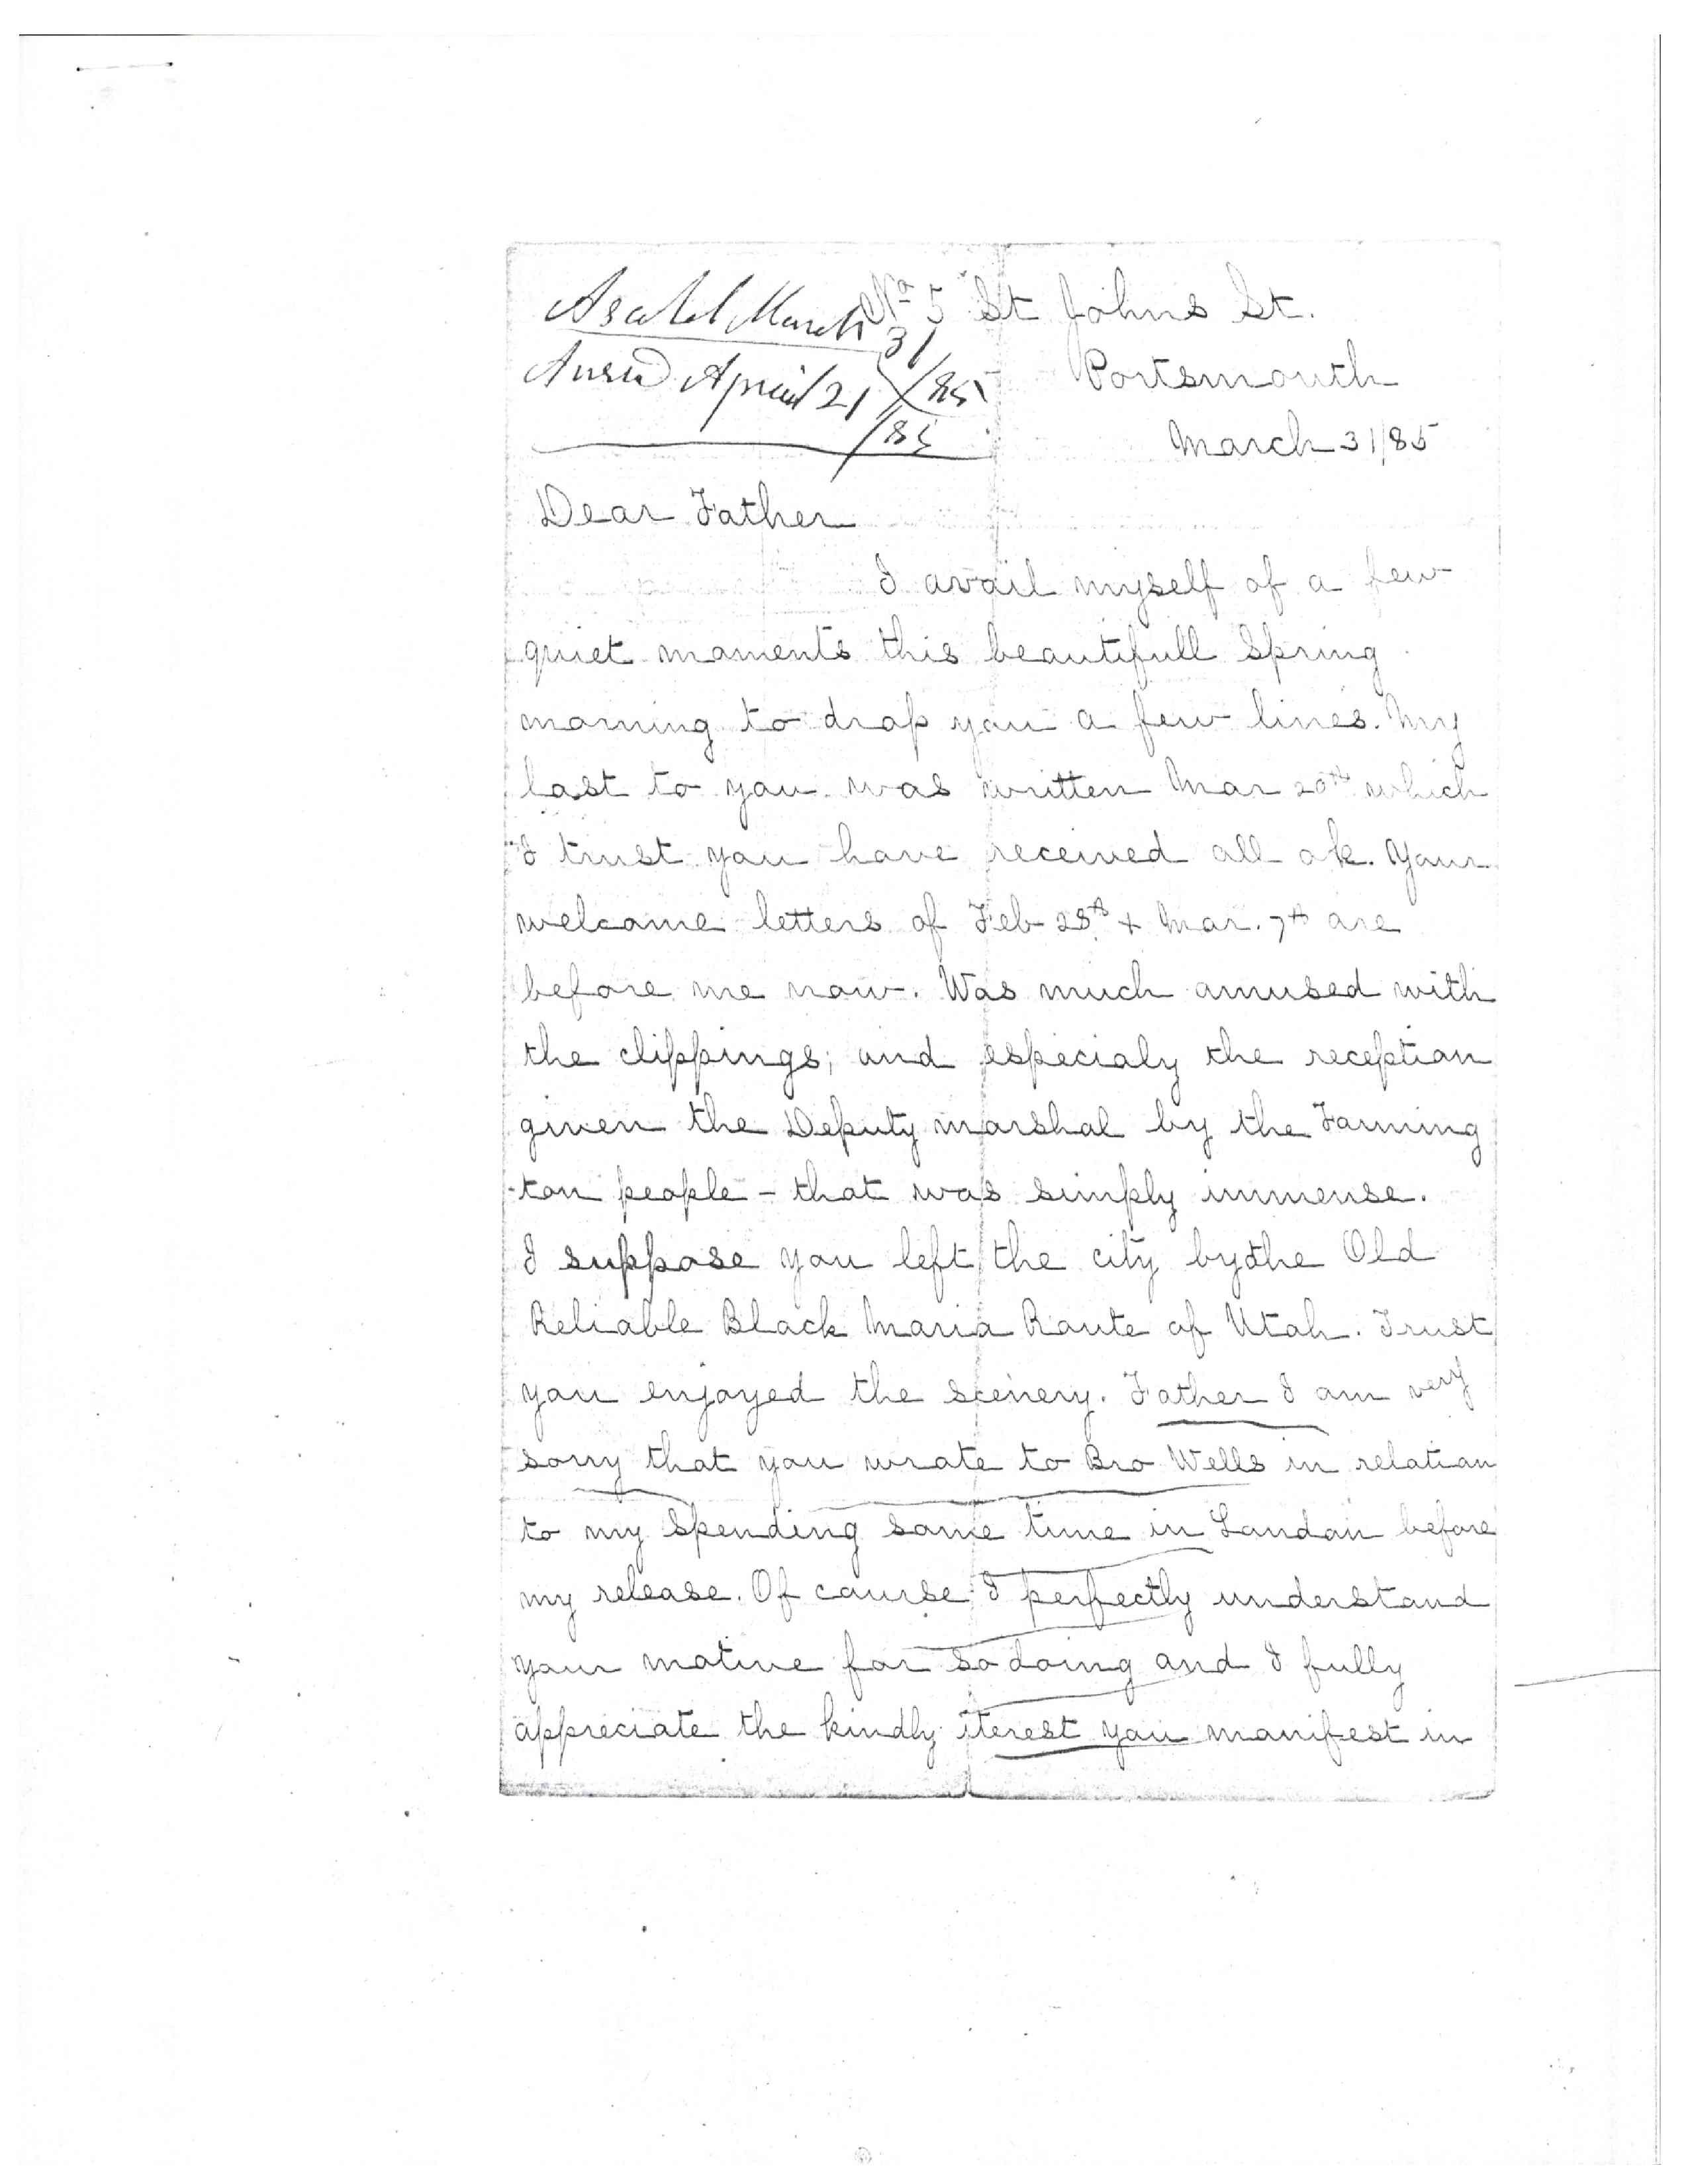 Asahel March 31/85
Answd April 21/85
No 5 St Johns St.
Portsmouth
March 31/85
Dear Father
I avail myself of a few
quiet moments this beautifull Spring
morning to drop you a few lines. My
last to you was written Mar 20th which
I trust you have received all ok. Your
welcome letters of Feb 28th + Mar. 7th are
before me now. Was much amused with
the clippings; and especialy the reception
given the Deputy marshal by the Farming
-ton people - that was simply immense.
I suppose you left the city by the Old
Reliable Black Maria Route of Utah. Trust
you enjoyed the scenery. Father I am very
sorry that you wrote to Bro Wells in relation
to my Spending some time in London before
my release. Of course I perfectly understand
your motive for so doing and I fully
appreciate the kindly iterest you manifest in